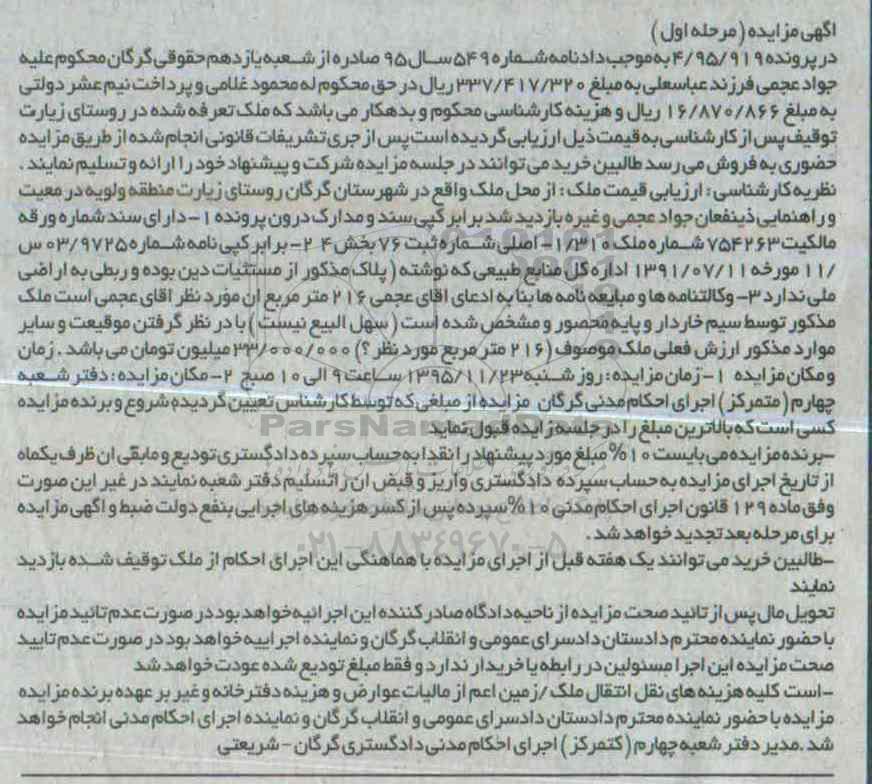 اگهی مزایده (مرحله اول)
در پرونده ۴/۹۵/۹۱۹ به موجب دادنامه شماره ۵۴۹ سال ۹۵ صادره از شعبه یازدهم حقوقی گرگان محکوم علیه
جواد عجمی فرزند عباسعلی به مبلغ ۳۳۷/۴۱۷/۳۲۰ ریال در حق محکوم له محمود غلامی و پرداخت نیم عشر دولتی
به مبلغ ۱۶/۸۷۰/۸۶۶ ریال و هزینه کارشناسی محکوم و بدهکار می باشد که ملک تعرفه شده در روستای زیارت
توقیف پس از کارشناسی به قیمت ذیل ارزیابی گردیده است پس از جری تشریفات قانونی انجام شده از طریق مزایده
حضوری به فروش می رسد طالبین خرید می توانند در جلسه مزایده شرکت و پیشنهاد خود را ارائه و تسلیم نمایند .
نظریه کارشناسی : ارزیابی قیمت ملک : از محل ملک واقع در شهرستان گرگان روستای زیارت منطقه ولویه در معیت
و راهنمایی ذینفعان جواد عجمی و غیره بازدید شد برابر کپی سند و مدارک درون پرونده ۱- دارای سند شماره ورقه
مالکیت ۷۵۴۲۶۳ شماره ملک ۱/۳۱۰- اصلی شماره ثبت ۷۶ بخش ۴ ۲- برابر کپی نامه شماره ۰۳/۹۷۲۵ س
/۱۱ مورخه ۱۳۹۱/۰۷/۱۱ اداره کل منابع طبیعی که نوشته (پلاک مذکور از مستثیات دین بوده و ربطی به اراضی
ملی ندارد ۳- وکالتنامه ها و مبایعه نامه ها بنا به ادعای اقای عجمی ۲۱۶ متر مربع ان مورد نظر اقای عجمی است ملک
مذکور توسط سیم خاردار و پایه محصور و مشخص شده است (سهل البیع نیست) با در نظر گرفتن موقیعت و سایر
موارد مذکور ارزش فعلی ملک موصوف (۲۱۶ متر مربع مورد نظر ؟) ۳۳/۰۰۰/۰۰۰ میلیون تومان می باشد . زمان
و مکان مزایده ۱- زمان مزایده : روز شنبه ۱۳۹۵/۱۱/۲۳ ساعت ۹ الی ۱۰ صبح ۲- مکان مزایده : دفتر شعبه
چهارم (متمرکز) اجرای احکام مدنی گرگان مزایده از مبلغی که توسط کارشناس تعیین گردیده شروع و برنده مزایده
کسی است که بالاترین مبلغ را در جلسه زایده قبول نماید
-برنده مزایده می بایست ۱۰% مبلغ مورد پیشنهاد را نقدا به حساب سپرده دادگستری تودیع و مابقی ان ظرف یکماه
از تاریخ اجرای مزایده به حساب سپرده دادگستری واریز و قبض ان را تسلیم دفتر شعبه نمایند در غیر این صورت
وفق ماده ۱۲۹ قانون اجرای احکام مدنی ۱۰% سپرده پس از کسر هزینه های اجرایی بنفع دولت ضبط و اگهی مزایده
برای مرحله بعد تجدید خواهد شد .
-طالبین خرید می توانند یک هفته قبل از اجرای مزایده با هماهنگی این اجرای احکام از ملک توقیف شده بازدید
نمایند
تحویل مال پس از تائید صحت مزایده از ناحیه دادگاه صادر کننده این اجرائیه خواهد بود در صورت عدم تائید مزایده
با حضور نماینده محترم دادستان دادسرای عمومی و انقلاب گرگان و نماینده اجراییه خواهد بود در صورت عدم تایید
صحت مزایده این اجرا مسئولین در رابطه با خریدار ندارد و فقط مبلغ تودیع شده عودت خواهد شد
-است کلیه هزینه های نقل انتقال ملک/زمین اعم از مالیات عوارض و هزینه دفترخانه و غیر بر عهده برنده مزایده
مزایده با حضور نماینده محترم دادستان دادسرای عمومی و انقلاب گرگان و نماینده اجرای احکام مدنی انجام خواهد
شد .مدیر دفتر شعبه چهارم (کتمرکز) اجرای احکام مدنی دادگستری گرگان - شریعتی
ParsNamadData
۰۲۱-۸۸۳۴۹۶۷۰-۵